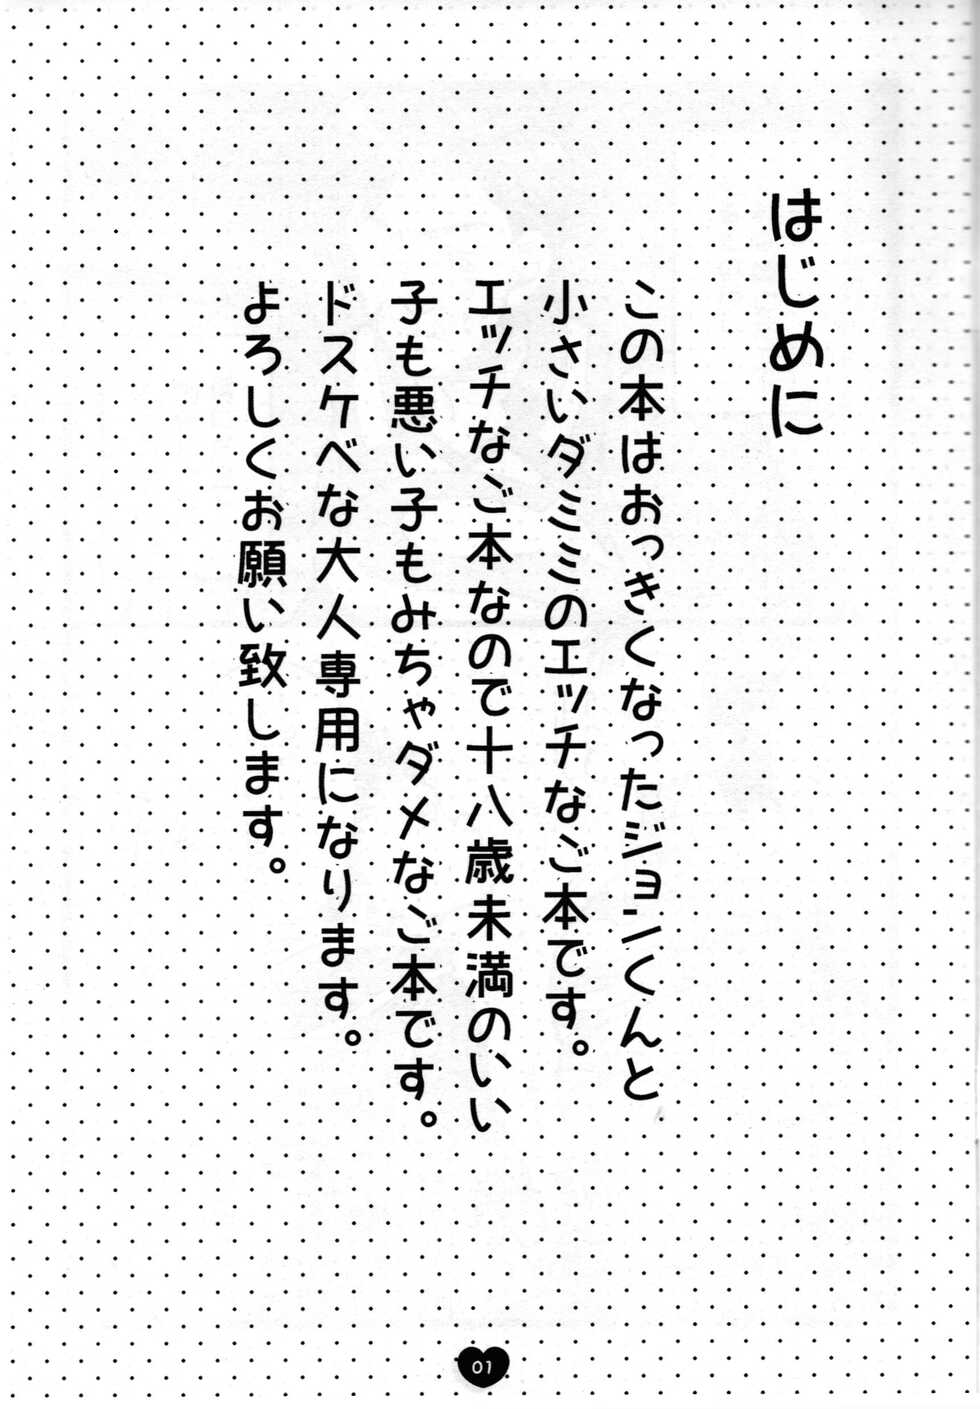 はじめに
この本はおっきくなったジョンくんと
小さいダミミのエッチなご本です。
エッチなご本なので十八歳未満のいい
子も悪い子もみちゃダメなご本です。
ドスケベな大人専用になります。
よろしくお願い致します。
01